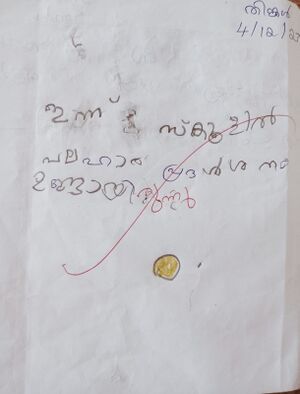 തിങ്കൾ
4/12/23
ഇന്ന് സ്കൂളിൽ
പലഹാര പ്രദർശനം
ഉണ്ടായിരുന്നു